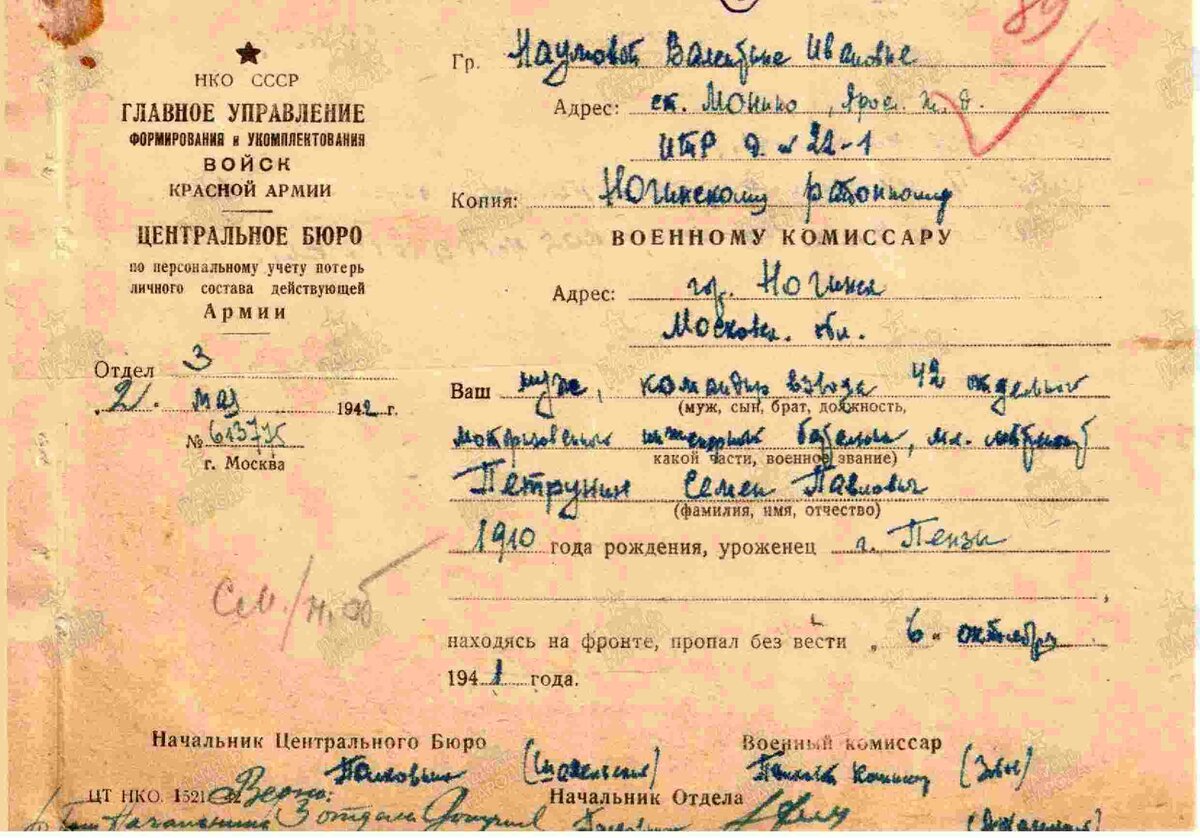 НКО СССР
ГЛАВНОЕ УПРАВЛЕНИЕ
ФОРМИРОВАНИЯ и УКОМПЛЕКТОВАНИЯ
ВОЙСК
КРАСНОЙ АРМИИ
ЦЕНТРАЛЬНОЕ БЮРО
по персональному учету потерь
личного состава действующей
Армии
Отдел 3
"21" мая 1942 г.
№
г. Москва
См./н. об
89
Гр. Наумовой Валентине Ивановне
Адрес: ст. Монино, Яросл. ж. д.
ИТР д. № 22-1
Копия: Ногинскому районному
ВОЕННОМУ КОМИССАРУ
Адрес: гор. Ногинск
Московск. обл.
Ваш муж, командир взвода 42 отдельного
(муж, сын, брат, должность,
моторизованный инженерный батальон, мл. лейтенант
какой части, военное звание)
Петрунин Семен Павлович
(фамилия, имя, отчество)
1910 года рождения, уроженец г. Пензы
находясь на фронте, пропал без вести "6" октября
1941 года.
Начальник Центрального Бюро
Военный комиссар
Полковник
ЦТ НКО. 1521 Верно:
Начальник Отдела
Начальника 3 отдела